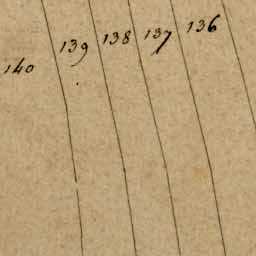 140 139 138 137 136